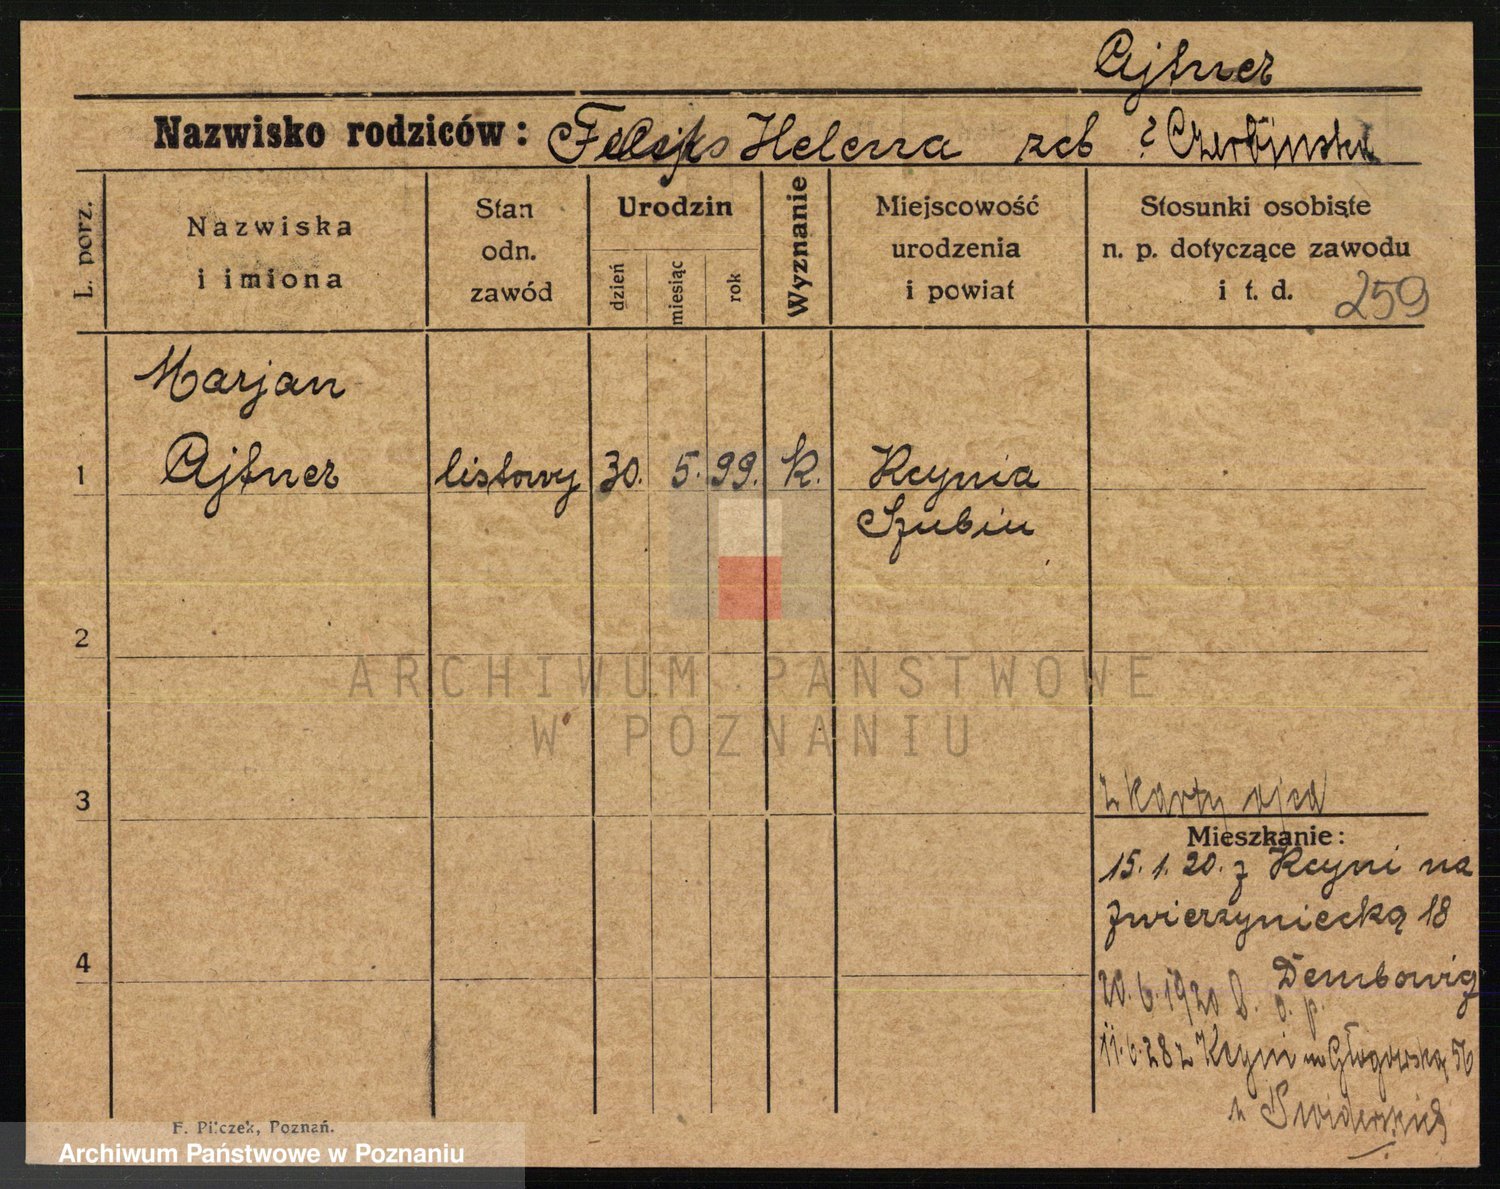 Ajtner
Nazwisko rodziców: Feliks Helena zeb ? Czerbińska
L. porz.
Nazwiska
i imiona
Stan
odn.
zawód
Urodzin
dzień
miesiąc
rok
Wyznanie
Miejscowość
urodzenia
i powiat
Stosunki osobiste
n. p. dotyczące zawodu
i t. d. 259
Marjan
1 Ajtner listowy 30. 5. 99. k. Kcynia
Szubin
2
3
z karty ojca
Mieszkanie:
15. 1. 20. z Kcyni na
zwierzyniecką 18
Dembowig
4
20. 6. 1920 o. p.
11. 6. 28 z Kcyni na Głogowską 56
F. Pilczek, Poznań.
ARCHIWUM PAŃSTWOWE
W POZNANIU
Archiwum Państwowe w Poznaniu